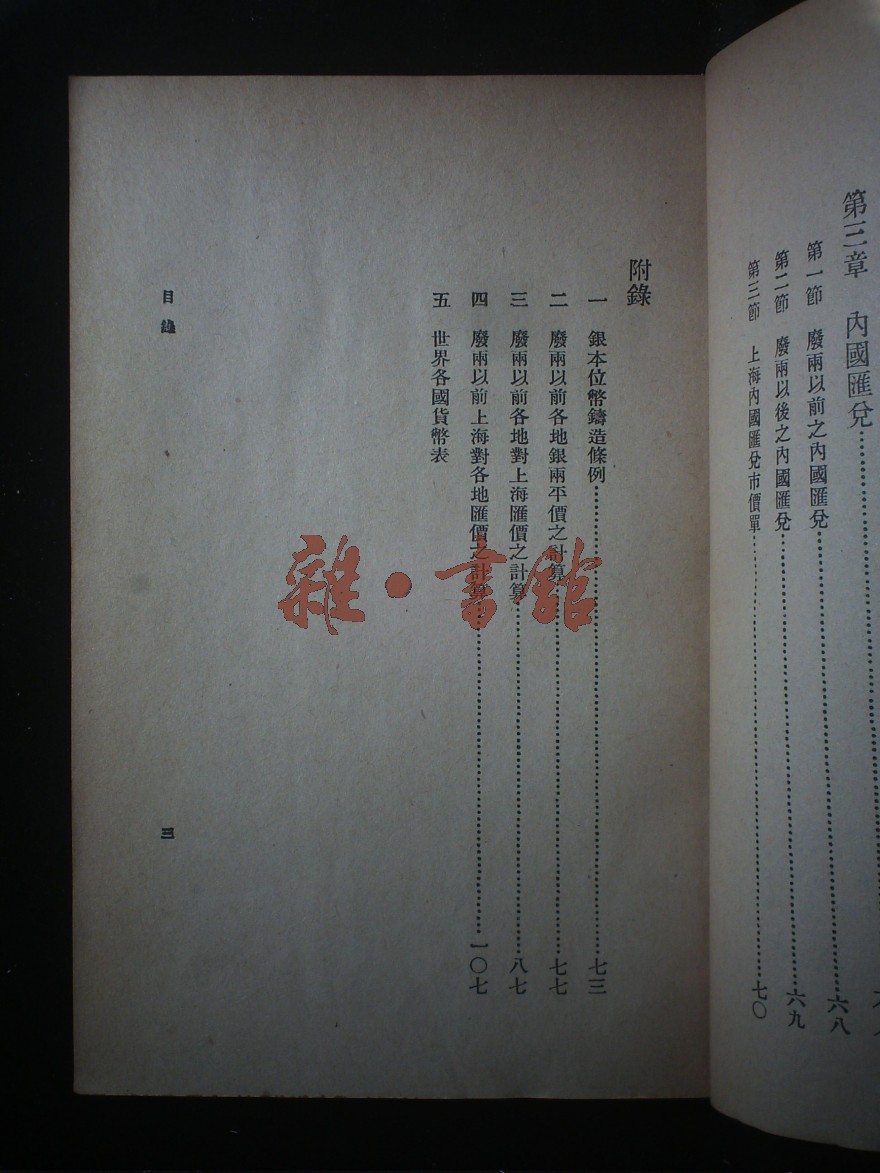 第三章 內國匯兌……
第一節 廢兩以前之內國匯兌……六八
第二節 廢兩以後之內國匯兌……六九
第三節 上海內國匯兌市價單……七〇
附錄
一 銀本位幣鑄造條例……七三
二 廢兩以前各地銀兩平價之計算……七七
三 廢兩以前各地對上海匯價之計算……八七
四 廢兩以前上海對各地匯價之計算……一〇七
五 世界各國貨幣表
目錄
三
雜·書館